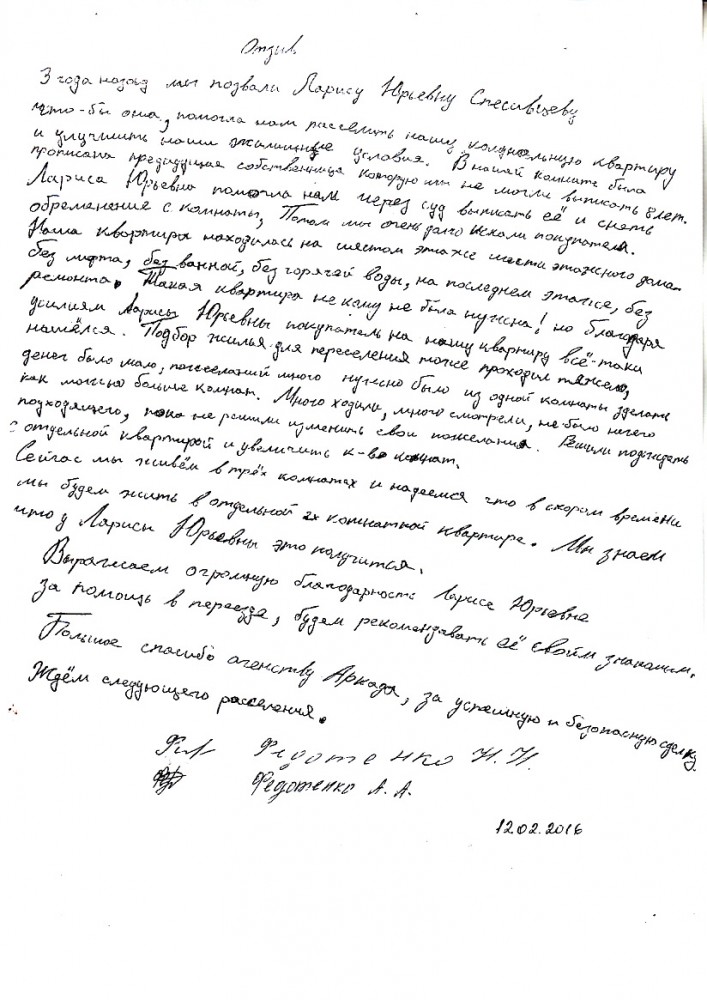 Отзыв
3 года назад мы позвали Ларису Юрьевну Спесивцеву
что-бы она, помогла нам расселить нашу коммунальную квартиру
и улучшить наши жилищные условия. В нашей комнате была
прописана предидущая собственница которую мы не могли выписать 8 лет.
Лариса Юрьевна помогла нам через суд выписать её и снять
обременение с комнаты, Потом мы очень долго искали покупателя.
Наша квартира находилась на шестом этаже шести этажного дома
без лифта, без ванной, без горячей воды, на последнем этаже, без
ремонта. Такая квартира не кому не была нужна! но благодаря
усилиям Ларисы Юрьевны покупатель на нашу квартиру всё-таки
нашёлся. Подбор жилья для переселения тоже проходил тяжело,
денег было мало, пожеланий много нужно было из одной комнаты зделать
как можно больше комнат. Много ходили, много смотрели, не было ничего
подходящего, пока не решили изменить свои пожелания. Решили подождать
с отдельной квартирой и увеличить к-во комнат.
Сейчас мы живём в трёх комнатах и надеемся что в скором времени
мы будем жить в отдельной 2х комнатной квартире. Мы знаем
что у Ларисы Юрьевны это получится.
Выражаем огромную благодарность Ларисе Юрьевне
за помощь в переезде, будем рекомендовать её своим знакомым.
Большое спасибо агенству Аркада, за успешную и безопасную сделку.
Ждём следующего расселения.
Федотенко Н.Н.
Федотенко А.А.
12.02.2016